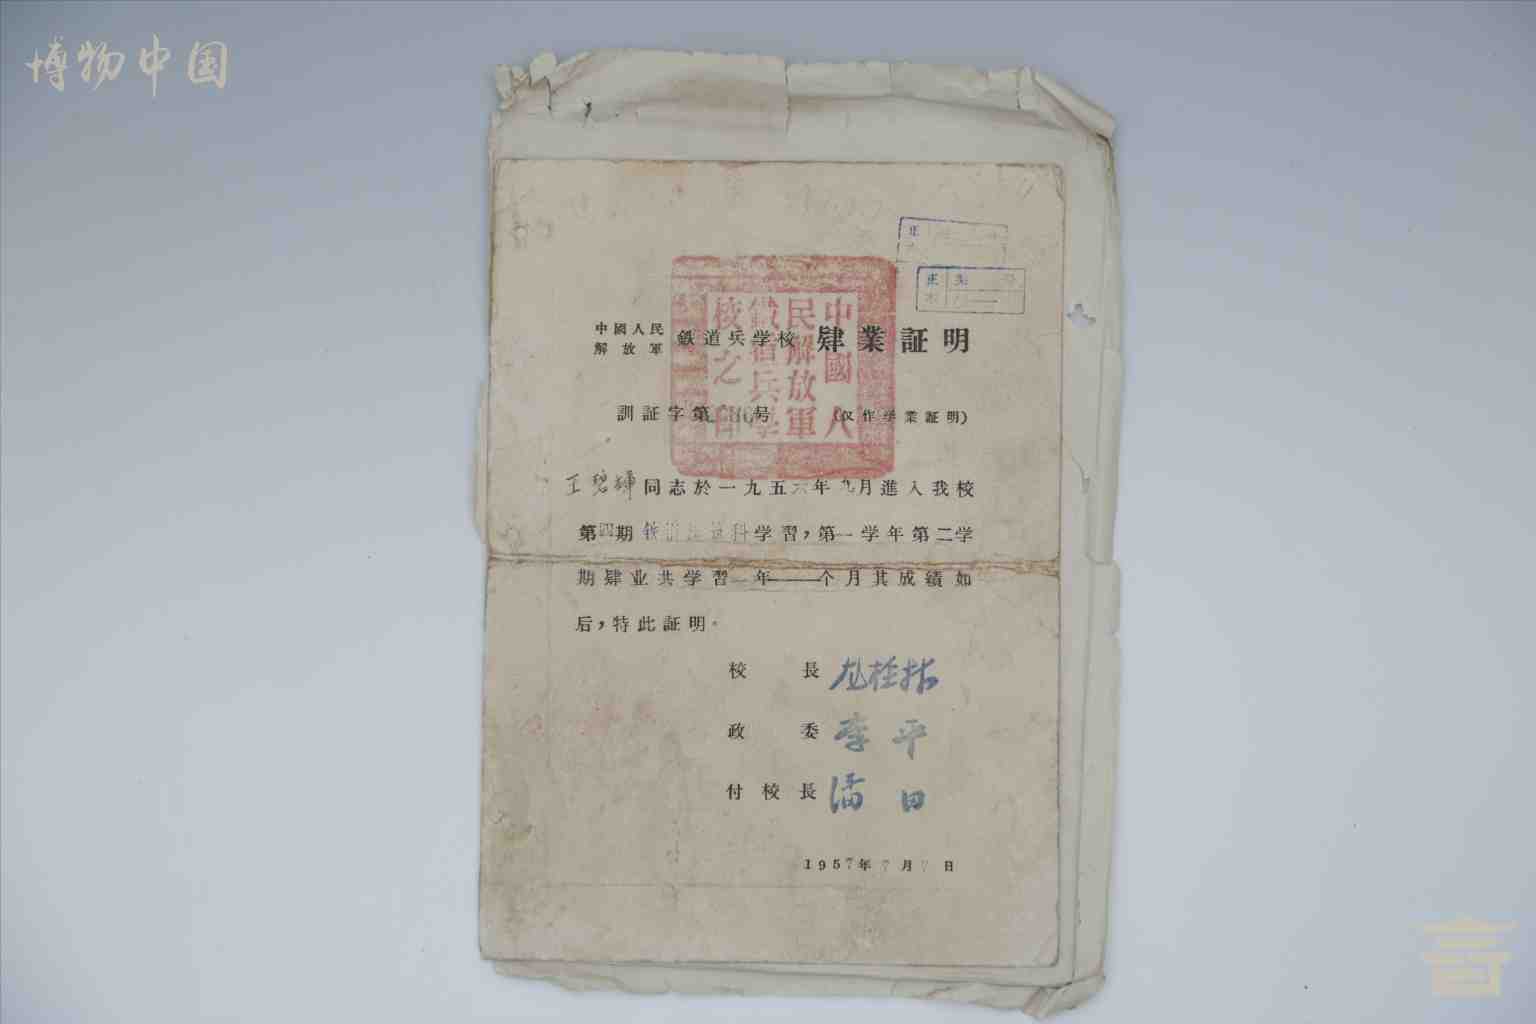 博物中国
中國人民
解放軍
鉄道兵学校 肄業証明
訓証字第 号 (仅作学業証明)
王碧輝同志於一九五六年九月進入我校
第四期鉄道 科学習,第一学年第二学
期肄业共学習一年——个月其成績如
后,特此証明。
校 長
政 委 李平
付校長 潘田
1957年7月7日
中國人
民解放軍
鐵道兵學
校之印